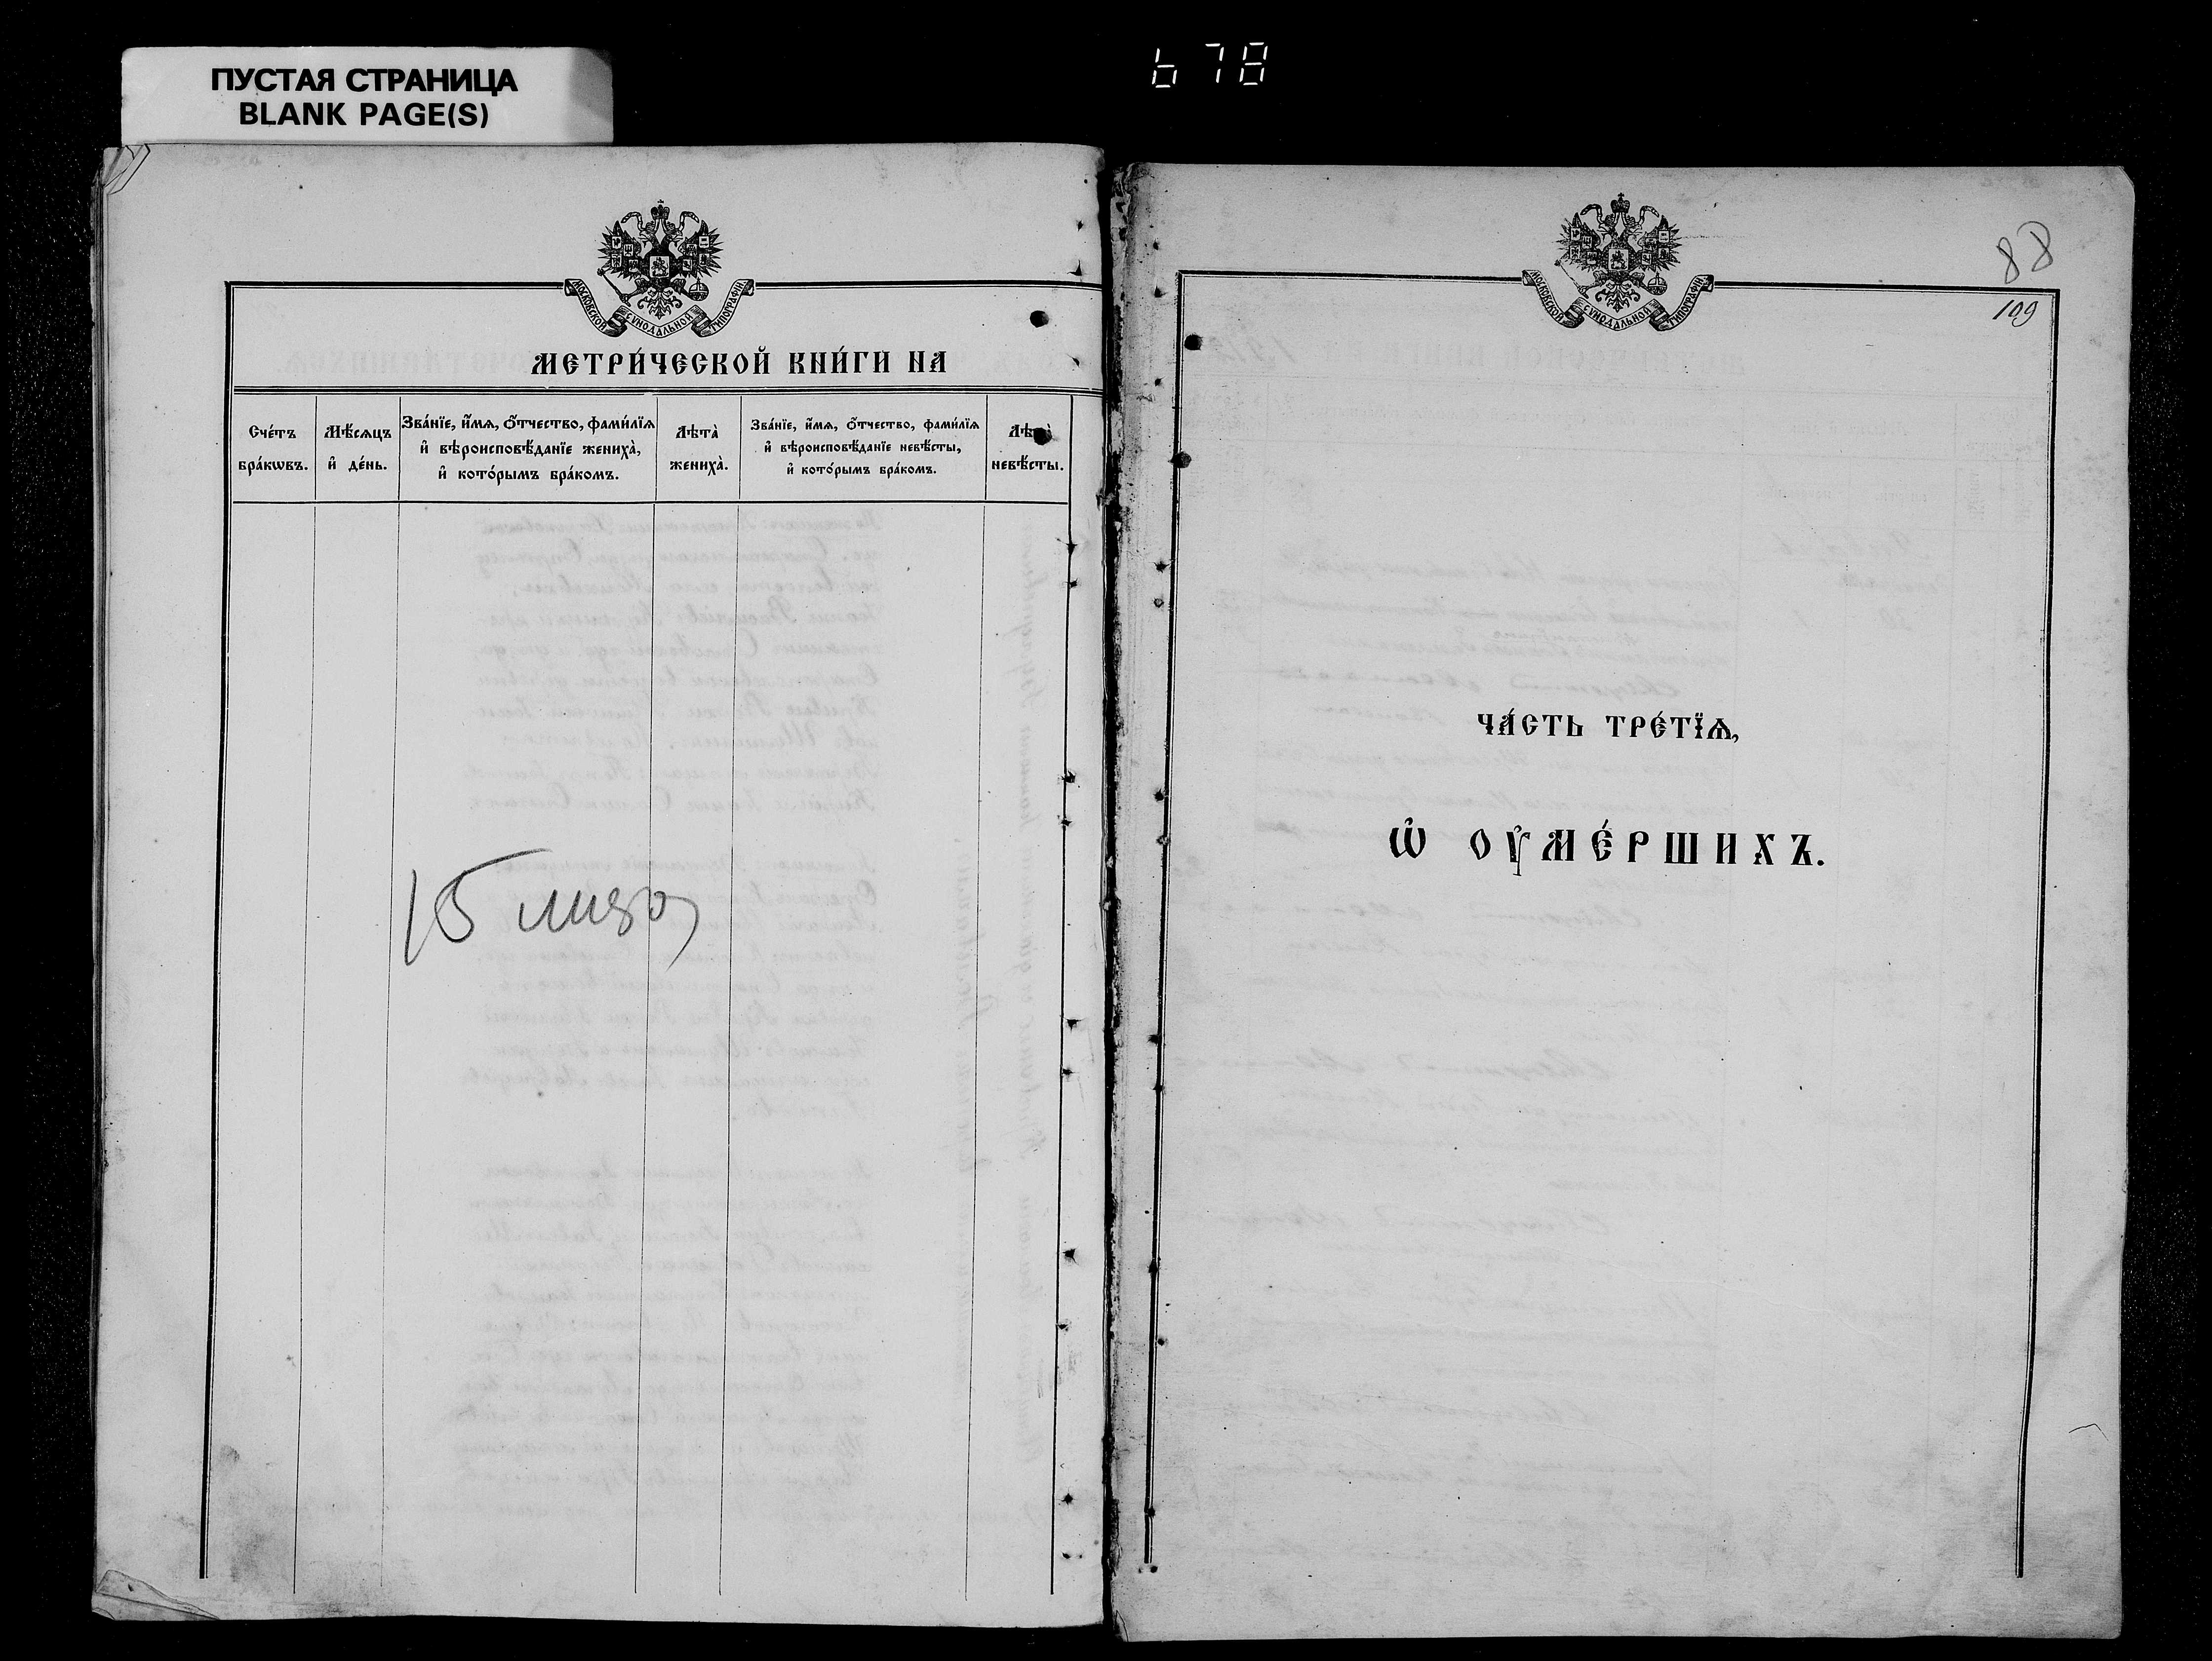 ПУСТАЯ СТРАНИЦА
BLANK PAGE(S)
678
МОСКОВСКОЙ СУНОДАЛЬНОЙ ТИПОГРАФІИ
МЕТРИ́ЧЕСКОЙ КНИ́ГИ НА
Сче́тъ бра́кѡвъ.
Мѣ́сяцъ и҆ де́нь.
Зва́нїе, и҆́мѧ, ѻ҆́тчество, фами́лїѧ и҆ вѣроисповѣ́данїе жениха̀, и҆ кото́рымъ бра́комъ.
Лѣта̀ жениха̀.
Зва́нїе, и҆́мѧ, ѻ҆́тчество, фами́лїѧ и҆ вѣроисповѣ́данїе невѣ́сты, и҆ кото́рымъ бра́комъ.
Лѣта̀ невѣ́сты.
15
МОСКОВСКОЙ СУНОДАЛЬНОЙ ТИПОГРАФІИ
88
109
ЧА́СТЬ ТРЕ́ТЇѦ,
Ѡ҆ ОУ҆МЕ́РШИХЪ.